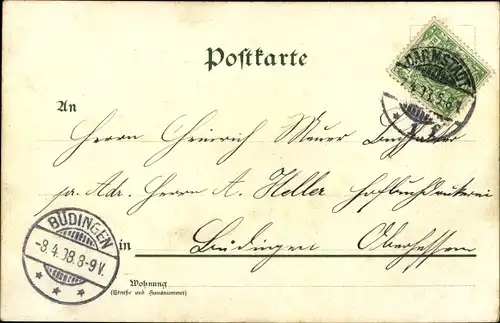 Postkarte
DARMSTADT
An
Herrn Heinrich Meuer
pr. Adr. Herrn A. Heller Hofbuchdruckerei
BÜDINGEN
-8.4.98.8-9V.
in Büdingen Oberhessen
Wohnung
(Straße und Hausnummer)